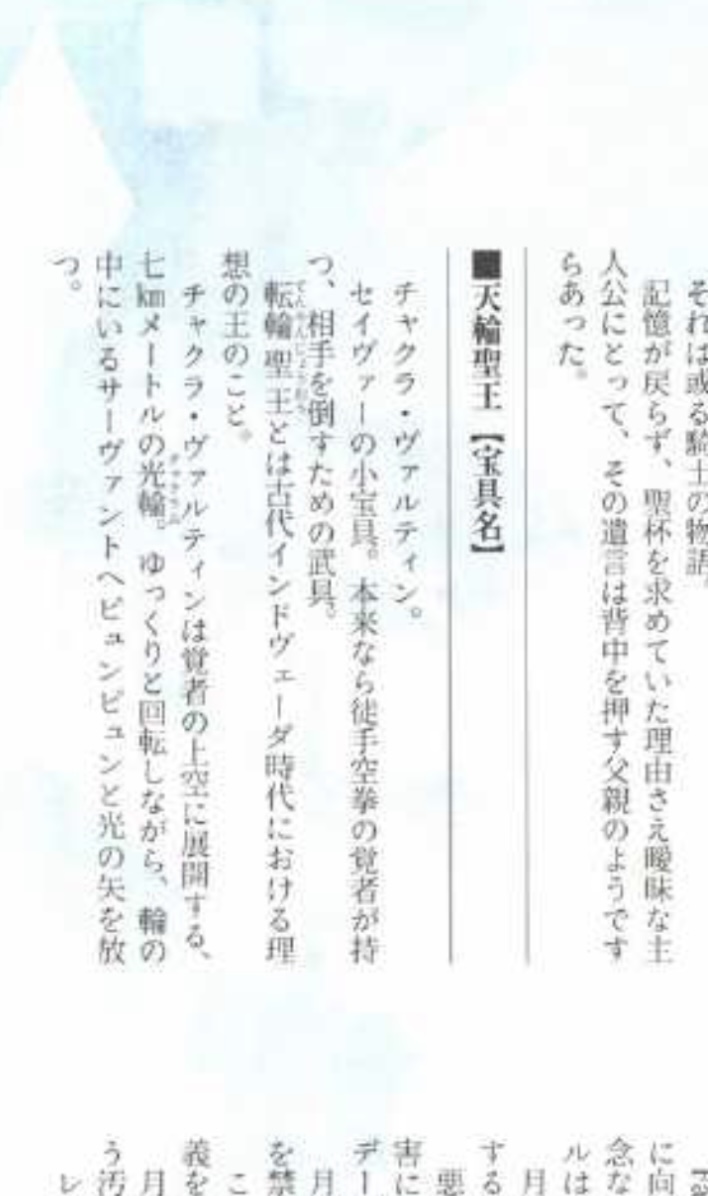 それは或る騎士の物語。
記憶が戻らず、聖杯を求めていた理由さえ曖昧な主
人公にとって、その遺言は背中を押す父親のようです
らあった。
■天輪聖王【宝具名】
チャクラ・ヴァルティン。
セイヴァーの小宝具。本来なら徒手空拳の覚者が持
つ、相手を倒すための武具。
転輪聖王とは古代インドヴェーダ時代における理
想の王のこと。
チャクラ・ヴァルティンは覚者の上空に展開する、
七㎞メートルの光輪。ゆっくりと回転しながら、輪の
中にいるサーヴァントへビュンビュンと光の矢を放
つ。
に向
念な
ルは
月
する
悪
害に
デー
月
を禁
こ
義を
月
う汚
レ